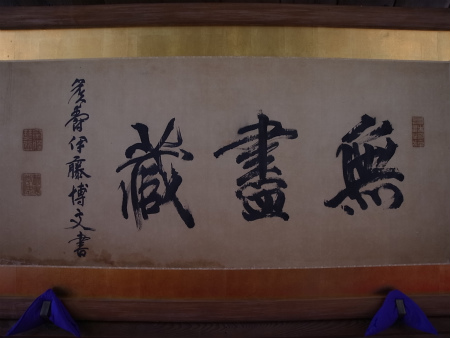 無盡藏
侯爵伊藤博文書